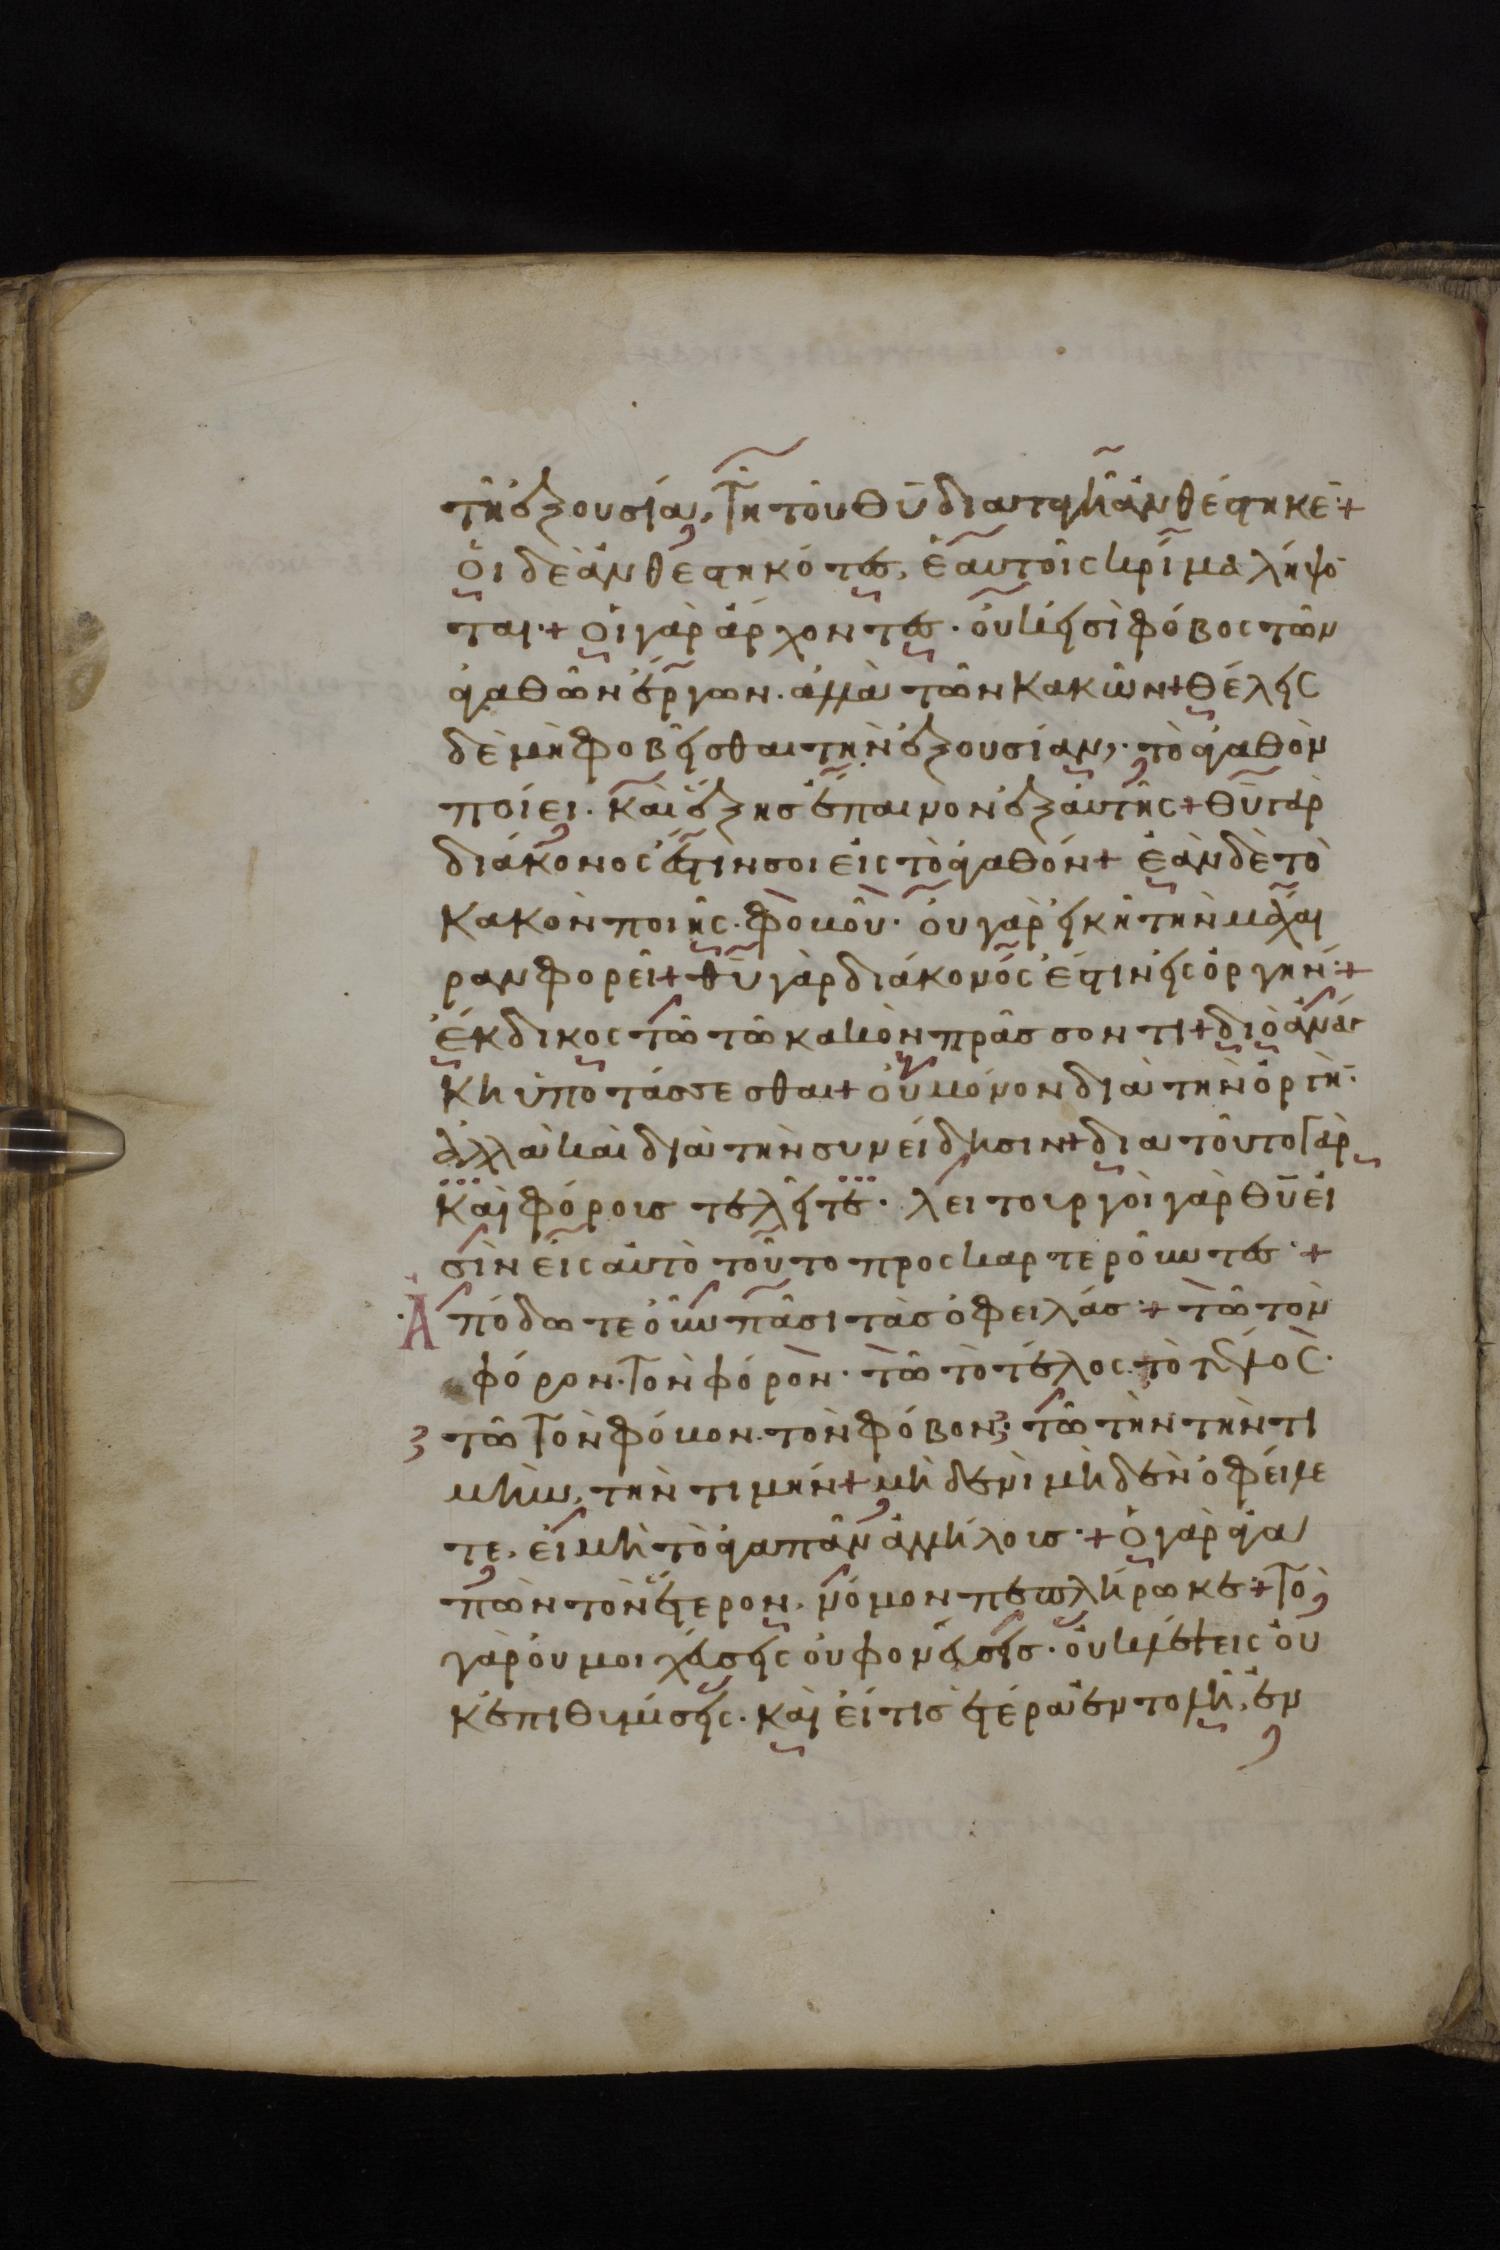 τῆ ἐξουσία, τῆ τοῦ θῡ διαταγῆ ἀνθέστηκε +
Οἱ δὲ ἀνθεστηκότες, ἑαυτοῖς κρίμα λήψο
ται + Οἱ γὰρ ἄρχοντες· οὐκ εἰσὶ φόβος τῶν
ἀγαθῶν ἔργων. ἀλλὰ τῶν κακῶν + Θέλεις
δὲ μὴ φοβεῖσθαι τὴν ἐξουσίαν, τὸ ἀγαθὸν
ποίει. καὶ ἕξης ἔπαινον ἐξ αὐτῆς + Θῡ γὰρ
διάκονος ἐστίν σοι εἰς τὸ ἀγαθόν + ἐὰν δὲ τὸ
κακὸν ποιῆς. φοβοῦ· οὐ γὰρ εἰκῆ τὴν μάχαι
ραν φορεῖ + θῡ γὰρ διάκονός ἐστιν εἰς ὀργήν +
ἔκδικος τῶ τῶ κακὸν πράσσοντι + διὸ ἀνάγ
κη ὑποτάσσεσθαι + οὐ μόνον διὰ τὴν ὀργὴ·
ἀλλὰ καὶ διὰ τὴν συνείδησιν + δια τοῦτο γὰρ
καὶ φόρους τελεῖτε· λειτουργοὶ γὰρ θῡ εἰ
σὶν εἰς αὐτὸ τοῦτο προσκαρτεροῦντες· +
Ἀπόδοτε οὖν πᾶσι τὰς ὀφειλάς + τῶ τὸν
φόρον. τὸν φόρον· τῶ τὸ τέλος. τὸ τέλος.
τῶ τὸν φόβον. τὸν φόβον· τῶ τὴν τὴν τι
μὴν, τὴν τιμήν + μηδενὶ μηδὲν ὀφείλε
τε, εἰ μὴ τὸ ἀγαπᾶν ἀλλήλους· + Ὁ γὰρ ἀγα
πῶν τὸν ἕτερον, νόμον πεπλήρωκε + Τὸ
γὰρ οὐ μοιχεύσεις οὐ φονεύσεις· οὐ κλέψεις οὐ
κ ἐπιθυμήσεις. καὶ εἴ τις ἑτέρα ἐντολὴ, ἐν